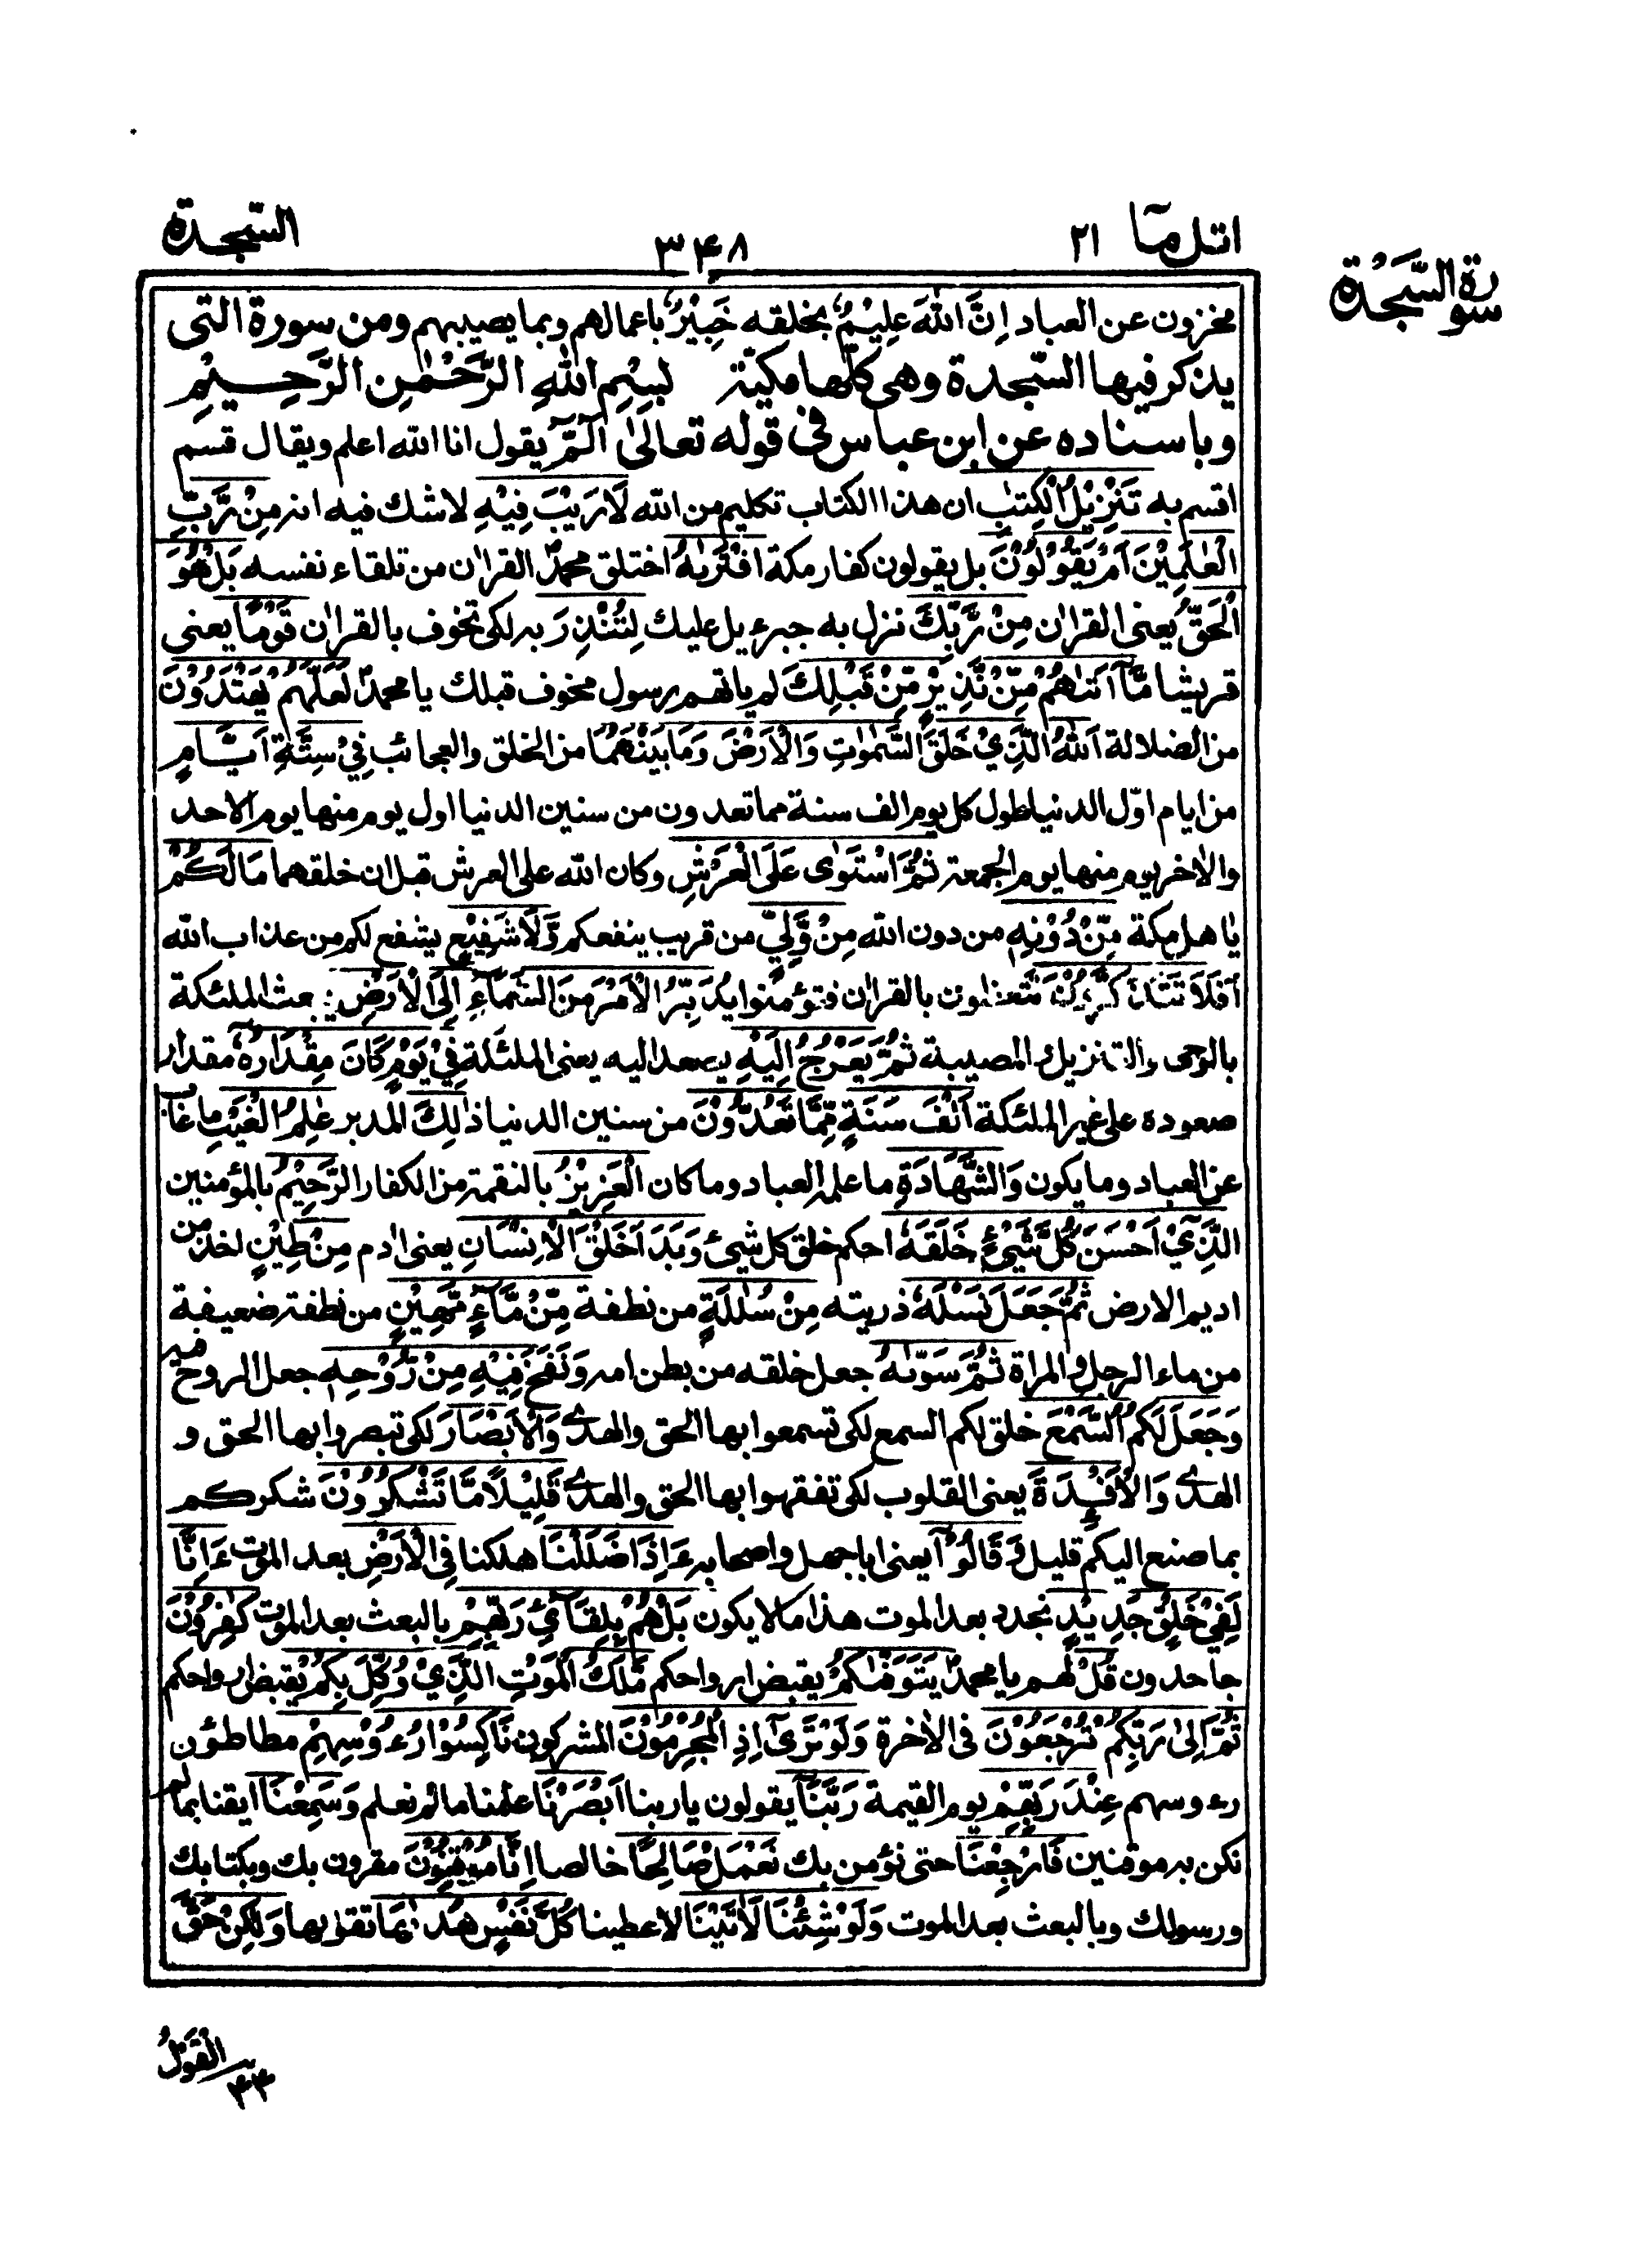 اتل مآ ٢١
٣٤٨
السّجدة
سورة السَّجْدَة
مخزون عن العباد اِنَّ اللهَ عَلِيْمٌ بخلقه خَبِيْرٌ باعمالهم وبما يصيبهم ومن سورة التى
يذكر فيها السّجدة وهى كلّها مكيّة بِسْمِ اللهِ الرَّحْمٰنِ الرَّحِيْمِ
وباسناده عن ابن عباس فى قوله تعالىٰ الٓمّٓ يقول انا الله اعلم ويقال قسم
اقسم به تَنْزِيْلُ الْكِتٰبِ ان هذا الكتاب تكليم من الله لَا رَيْبَ فِيْهِ لاشك فيه انه مِنْ رَّبِّ
الْعٰلَمِيْنَ اَمْ يَقُوْلُوْنَ بل يقولون كفار مكة افْتَرٰىهُ اختلق محمدؐ القراٰن من تلقاء نفسه بَلْ هُوَ
الْحَقُّ يعنى القراٰن مِنْ رَّبِّكَ نزل به جبرءيل عليك لِتُنْذِرَ به لكى تخوف بالقراٰن قَوْمًا يعنى
قريشا مَّآ اَتٰىهُمْ مِّنْ نَّذِيْرٍ مِّنْ قَبْلِكَ لم ياتهم رسول مخوف قبلك يا محمدؐ لَعَلَّهُمْ يَهْتَدُوْنَ
من الضلالة اَللهُ الَّذِيْ خَلَقَ السَّمٰوٰتِ وَالْاَرْضَ وَمَا بَيْنَهُمَا من الخلق والعجائب فِيْ سِتَّةِ اَيَّامٍ
من ايام اوّل الدنيا طول كل يوم الف سنة مما تعدون من سنين الدنيا اول يوم منها يوم الاحد
والاٰخر يوم منها يوم الجمعة ثُمَّ اسْتَوٰى عَلَى الْعَرْشِ وكان الله على العرش قبل ان خلقهما مَا لَكُمْ
يٰا هل مكة مِّنْ دُوْنِهٖ من دون الله مِنْ وَّلِيٍّ من قريب ينفعكم وَّلَا شَفِيْعٍ يشفع لكم من عذاب الله
اَفَلَا تَتَذَكَّرُوْنَ تتعظون بالقراٰن فتؤمنوا يُدَبِّرُ الْاَمْرَ مِنَ السَّمَآءِ اِلَى الْاَرْضِ يبعث الملئكة
بالوحى والتنزيل والمصيبة ثُمَّ يَعْرُجُ اِلَيْهِ يصعد اليه يعنى الملئكة فِيْ يَوْمٍ كَانَ مِقْدَارُهٗٓ مقدار
صعوده على غير الملئكة اَلْفَ سَنَةٍ مِّمَّا تَعُدُّوْنَ من سنين الدنيا ذٰلِكَ المدبر عٰلِمُ الْغَيْبِ ما غاب
عن العباد وما يكون وَالشَّهَادَةِ ما علمه العباد وما كان الْعَزِيْزُ بالنقمة من الكفار الرَّحِيْمُ بالمؤمنين
الَّذِيْٓ اَحْسَنَ كُلَّ شَيْءٍ خَلَقَهٗ احكم خلق كل شىء وَبَدَاَ خَلْقَ الْاِنْسَانِ يعنى اٰدم مِنْ طِيْنٍ اخذ من
اديم الارض ثُمَّ جَعَلَ نَسْلَهٗ ذريته مِنْ سُلٰلَةٍ من نطفة مِّنْ مَّآءٍ مَّهِيْنٍ من نطفة ضعيفة
من ماء الرجل والمراة ثُمَّ سَوّٰىهُ جعل خلقه من بطن امه وَنَفَخَ فِيْهِ مِنْ رُّوْحِهٖ جعل الروح فيه
وَجَعَلَ لَكُمُ السَّمْعَ خلق لكم السمع لكى تسمعوا بها الحق والهدىٰ وَالْاَبْصَارَ لكى تبصروا بها الحق و
الهدىٰ وَالْاَفْـِٕدَةَ يعنى القلوب لكى تفقهوا بها الحق والهدىٰ قَلِيْلًا مَّا تَشْكُرُوْنَ شكركم
بما صنع اليكم قليل وَقَالُوْٓا يعنى اباجهل واصحابه ءَاِذَا ضَلَلْنَا هلكنا فِى الْاَرْضِ بعد الموت ءَاِنَّا
لَفِيْ خَلْقٍ جَدِيْدٍ نجدد بعد الموت هذا مالا يكون بَلْ هُمْ بِلِقَآئِ رَبِّهِمْ بالبعث بعد الموت كٰفِرُوْنَ
جاحدون قُلْ لهم يا محمدؐ يَتَوَفّٰىكُمْ يقبض ارواحكم مَّلَكُ الْمَوْتِ الَّذِيْ وُكِّلَ بِكُمْ يقبض ارواحكم
ثُمَّ اِلٰى رَبِّكُمْ تُرْجَعُوْنَ فى الاٰخرة وَلَوْ تَرٰٓى اِذِ الْمُجْرِمُوْنَ المشركون نَاكِسُوْا رُءُوْسِهِمْ مطاطئون
رءوسهم عِنْدَ رَبِّهِمْ يوم القيمة رَبَّنَآ يقولون ياربنا اَبْصَرْنَا علمنا مالم نعلم وَسَمِعْنَا ايقنا بما لم
نكن به موقنين فَارْجِعْنَا حتى نؤمن بك نَعْمَلْ صَالِحًا خالصا اِنَّا مُوْقِنُوْنَ مقرون بك وبكتابك
ورسولك وبالبعث بعد الموت وَلَوْ شِئْنَا لَاٰتَيْنَا لاعطينا كُلَّ نَفْسٍ هُدٰىهَا تقوٰىها وَلٰكِنْ حَقَّ
الْقَوْلُ